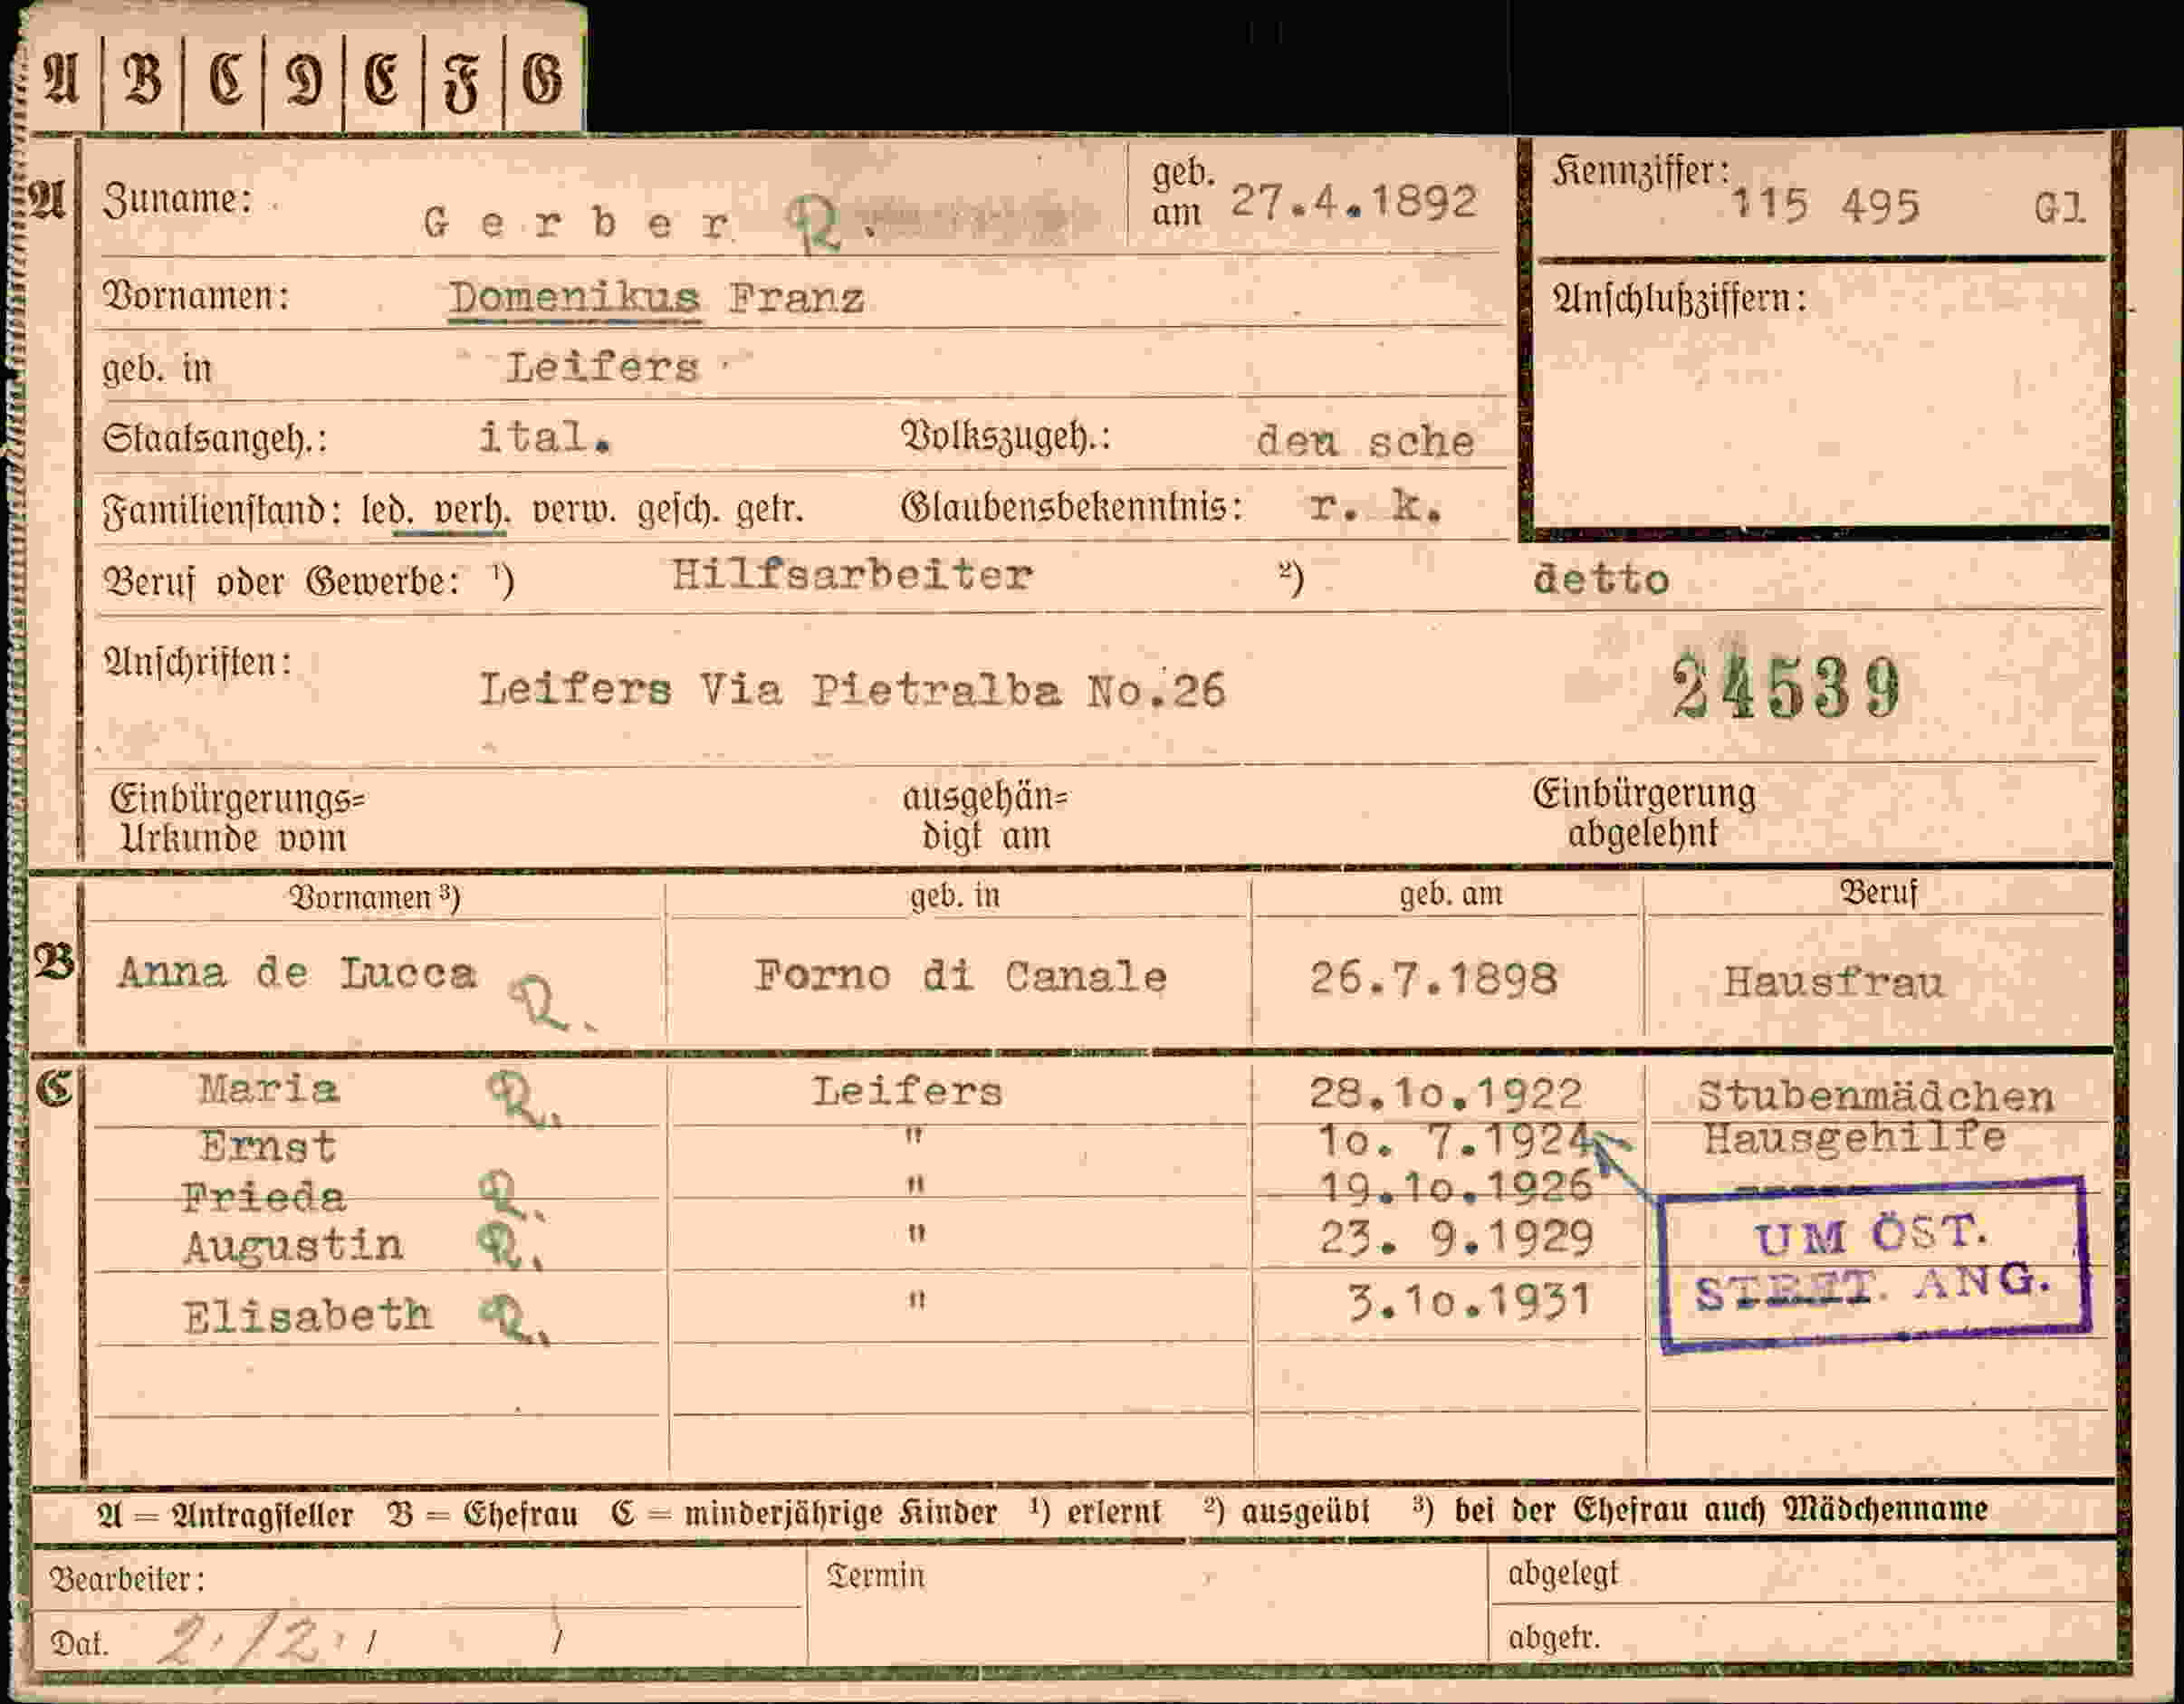 A B C D E F G
A Zuname: Gerber R. geb. am 27.4.1892 Kennziffer: 115 495 Gl
Vornamen: Domenikus Franz Anschlußziffern:
geb. in Leifers
Staatsangeh.: ital. Volkszugeh.: deu sche
Familienstand: led. verh. verw. gesch. getr. Glaubensbekenntnis: r. k.
Beruf oder Gewerbe: ¹) Hilfsarbeiter ²) detto
Anschriften: Leifers Via Pietralba No.26 24539
Einbürgerungs= ausgehän= Einbürgerung
Urkunde vom digt am abgelehnt
Vornamen ³) geb. in geb. am Beruf
B Anna de Lucca R. Forno di Canale 26.7.1898 Hausfrau
C Maria R. Leifers 28.10.1922 Stubenmädchen
Ernst " 10. 7.1924 Hausgehilfe
Frieda R. " 19.10.1926
Augustin R. " 23. 9.1929 UM ÖST.
Elisabeth R. " 3.10.1931 ANG.
A = Antragsteller B = Ehefrau C = minderjährige Kinder ¹) erlernt ²) ausgeübt ³) bei der Ehefrau auch Mädchenname
Bearbeiter: Termin abgelegt
Dat. 2.12. / / abgetr.